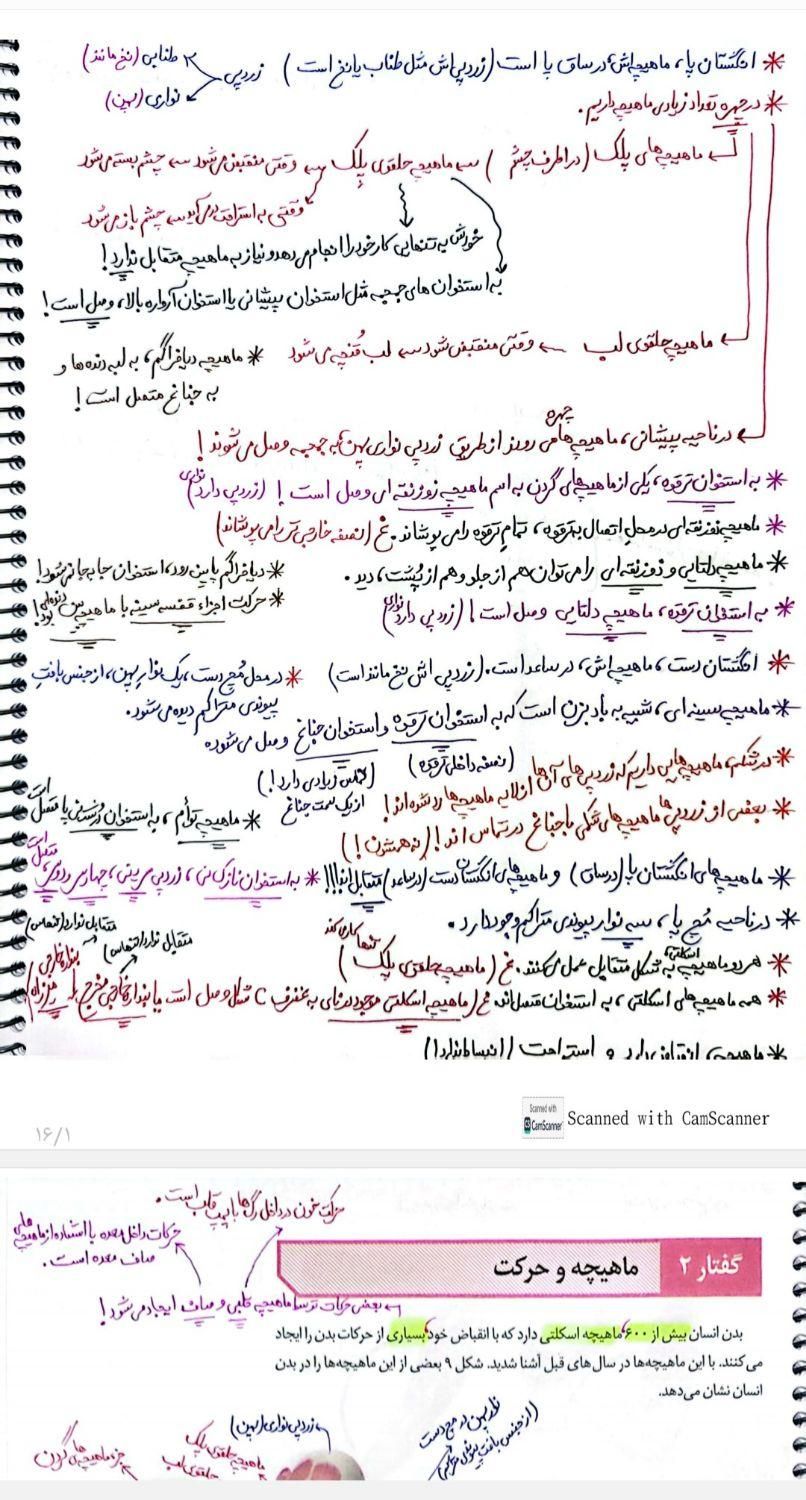 * انگشتان پا، ماهیچه‌اش، در ساق پا است (زردپی‌اش مثل طناب یا نخ است) زردپی
طنابی (نخ مانند)
نواری (پهن)
* در چهره تعداد زیادی ماهیچه داریم.
ماهیچه‌های پلک (در اطراف چشم) ماهیچه حلقوی پلک وقتی منقبض می‌شود چشم بسته می‌شود
وقتی به استراحت در می‌آید چشم باز می‌شود
خودش به تنهایی کار خود را انجام می‌دهد و نیاز به ماهیچه متقابل ندارد!
به استخوان های جمجمه مثل استخوان پیشانی یا استخوان آرواره بالا، وصل است!
ماهیچه حلقوی لب وقتی منقبض شود لب غُنچه می‌شود
* ماهیچه دیافراگم، به لبه دنده‌ها و
به جناغ متصل است!
در ناحیه پیشانی، ماهیچه‌های چهره می روند از طریق زردپی نواری پهن، به جمجمه وصل می‌شوند!
* به استخوان ترقوه، یکی از ماهیچه‌های گردن به اسم ماهیچه ذوزنقه ای وصل است! (زردپی نواری دارد)
* ماهیچه ذوزنقه‌ای در محل اتصال به ترقوه، تمام ترقوه را می پوشاند. غ (نصفه خارجی ترقوه را می پوشاند)
* ماهیچه دلتایی و ذوزنقه ای را می‌توان هم از جلو و هم از پُشت، دید.
* دیافراگم پایین رود، استخوان جا به جا نمی‌شود!
* حرکت اجزاء قفسه سینه با ماهیچه بین دنده‌ای بود!
* به استخوان ترقوه، ماهیچه دلتایی وصل است! (زردپی نواری دارد)
* انگشتان دست، ماهیچه‌اش، در ساعد است. (زردپی اش نخ مانند است)
* در محل مُچ دست، یک نوار پهن، از جنس بافت
پیوندی متراکم دیده می‌شود.
* ماهیچه سینه ای، شبیه به باد بزن است که به استخوان ترقوه و استخوان جناغ وصل می‌شود
(نصفه داخلی ترقوه)
(تماس زیادی دارد!)
از یک سمت جناغ
* در شکم، ماهیچه‌هایی داریم که زردپی های آن‌ها از لایه ماهیچه‌ها رد شده اند!
* بعضی از زردپی‌ ماهیچه‌های شکمی با جناغ در تماس اند! (نه همشون!)
* ماهیچه توأم، به استخوان درشت‌نی پا متصل است
* ماهیچه‌های انگشتان پا (در ساق) و ماهیچه‌های انگشتان دست (در ساعد) متقابل‌اند!!!
* به استخوان نازک‌نی، زردپی سرینی، چهارسر و دوسر، متصل است
* در ناحیه مُچ پا، سه نوار پیوندی متراکم وجود دارد.
* هر دو ماهیچه اسکلتی به شکل متقابل عمل می‌کنند. غ (ماهیچه حلقوی پلک) تنها کار می کند
متقابل ندارد (تنهاس)
متقابل ندارد (تنهاس)
* همه ماهیچه‌های اسکلتی، به استخوان متصل‌اند. غ (ماهیچه اسکلتی موجود در نای به غضروف C شکل وصل است یا بنداره خارجی مخرج یا بنداره خارجی میزراه)
* ماهیچه، انقباض دارد و استراحت (انبساط ندارد!)
Scanned with CamScanner
۱۶/۱
حرکت خون در داخل رگ‌ها با پمپ قلب است.
حرکات داخل معده با استفاده از ماهیچه‌های
صاف معده است.
گفتار ۲ ماهیچه و حرکت
بعضی حرکات توسط ماهیچه قلبی و صاف ایجاد می‌شود!
بدن انسان بیش از ۶۰۰ ماهیچه اسکلتی دارد که با انقباض خود بسیاری از حرکات بدن را ایجاد
می‌کنند. با این ماهیچه‌ها در سال‌های قبل آشنا شدید. شکل ۹ بعضی از این ماهیچه‌ها را در بدن
انسان نشان می‌دهد.
زردپی نواری (پهن)
ماهیچه حلقوی پلک
حلقوی لب
جزء ماهیچه‌های گردن
پهن در مچ دست
(از جنس بافت پیوندی متراکم)